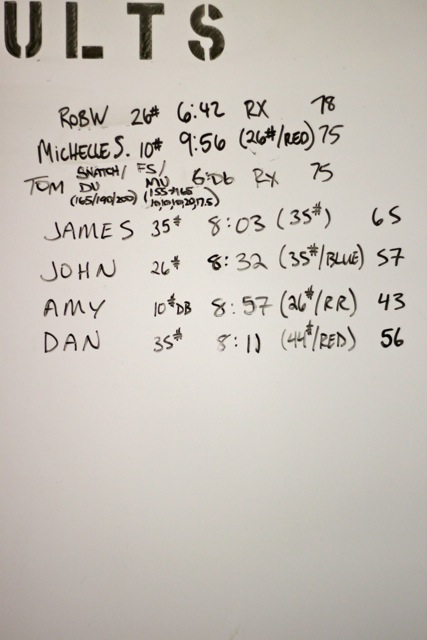 ULTS
ROBW 26# 6:42 RX 78
MICHELLE S. 10# 9:56 (26#/RED) 75
TOM SNATCH/ FS/ 6:06 RX 75
DU MU
(165/190/200)
JAMES 35# 8:03 (35#) 65
JOHN 26# 8:32 (35#/BLUE) 57
AMY 10#DB 8:57 (26#/RR) 43
DAN 35# 8:11 (44#/RED) 56